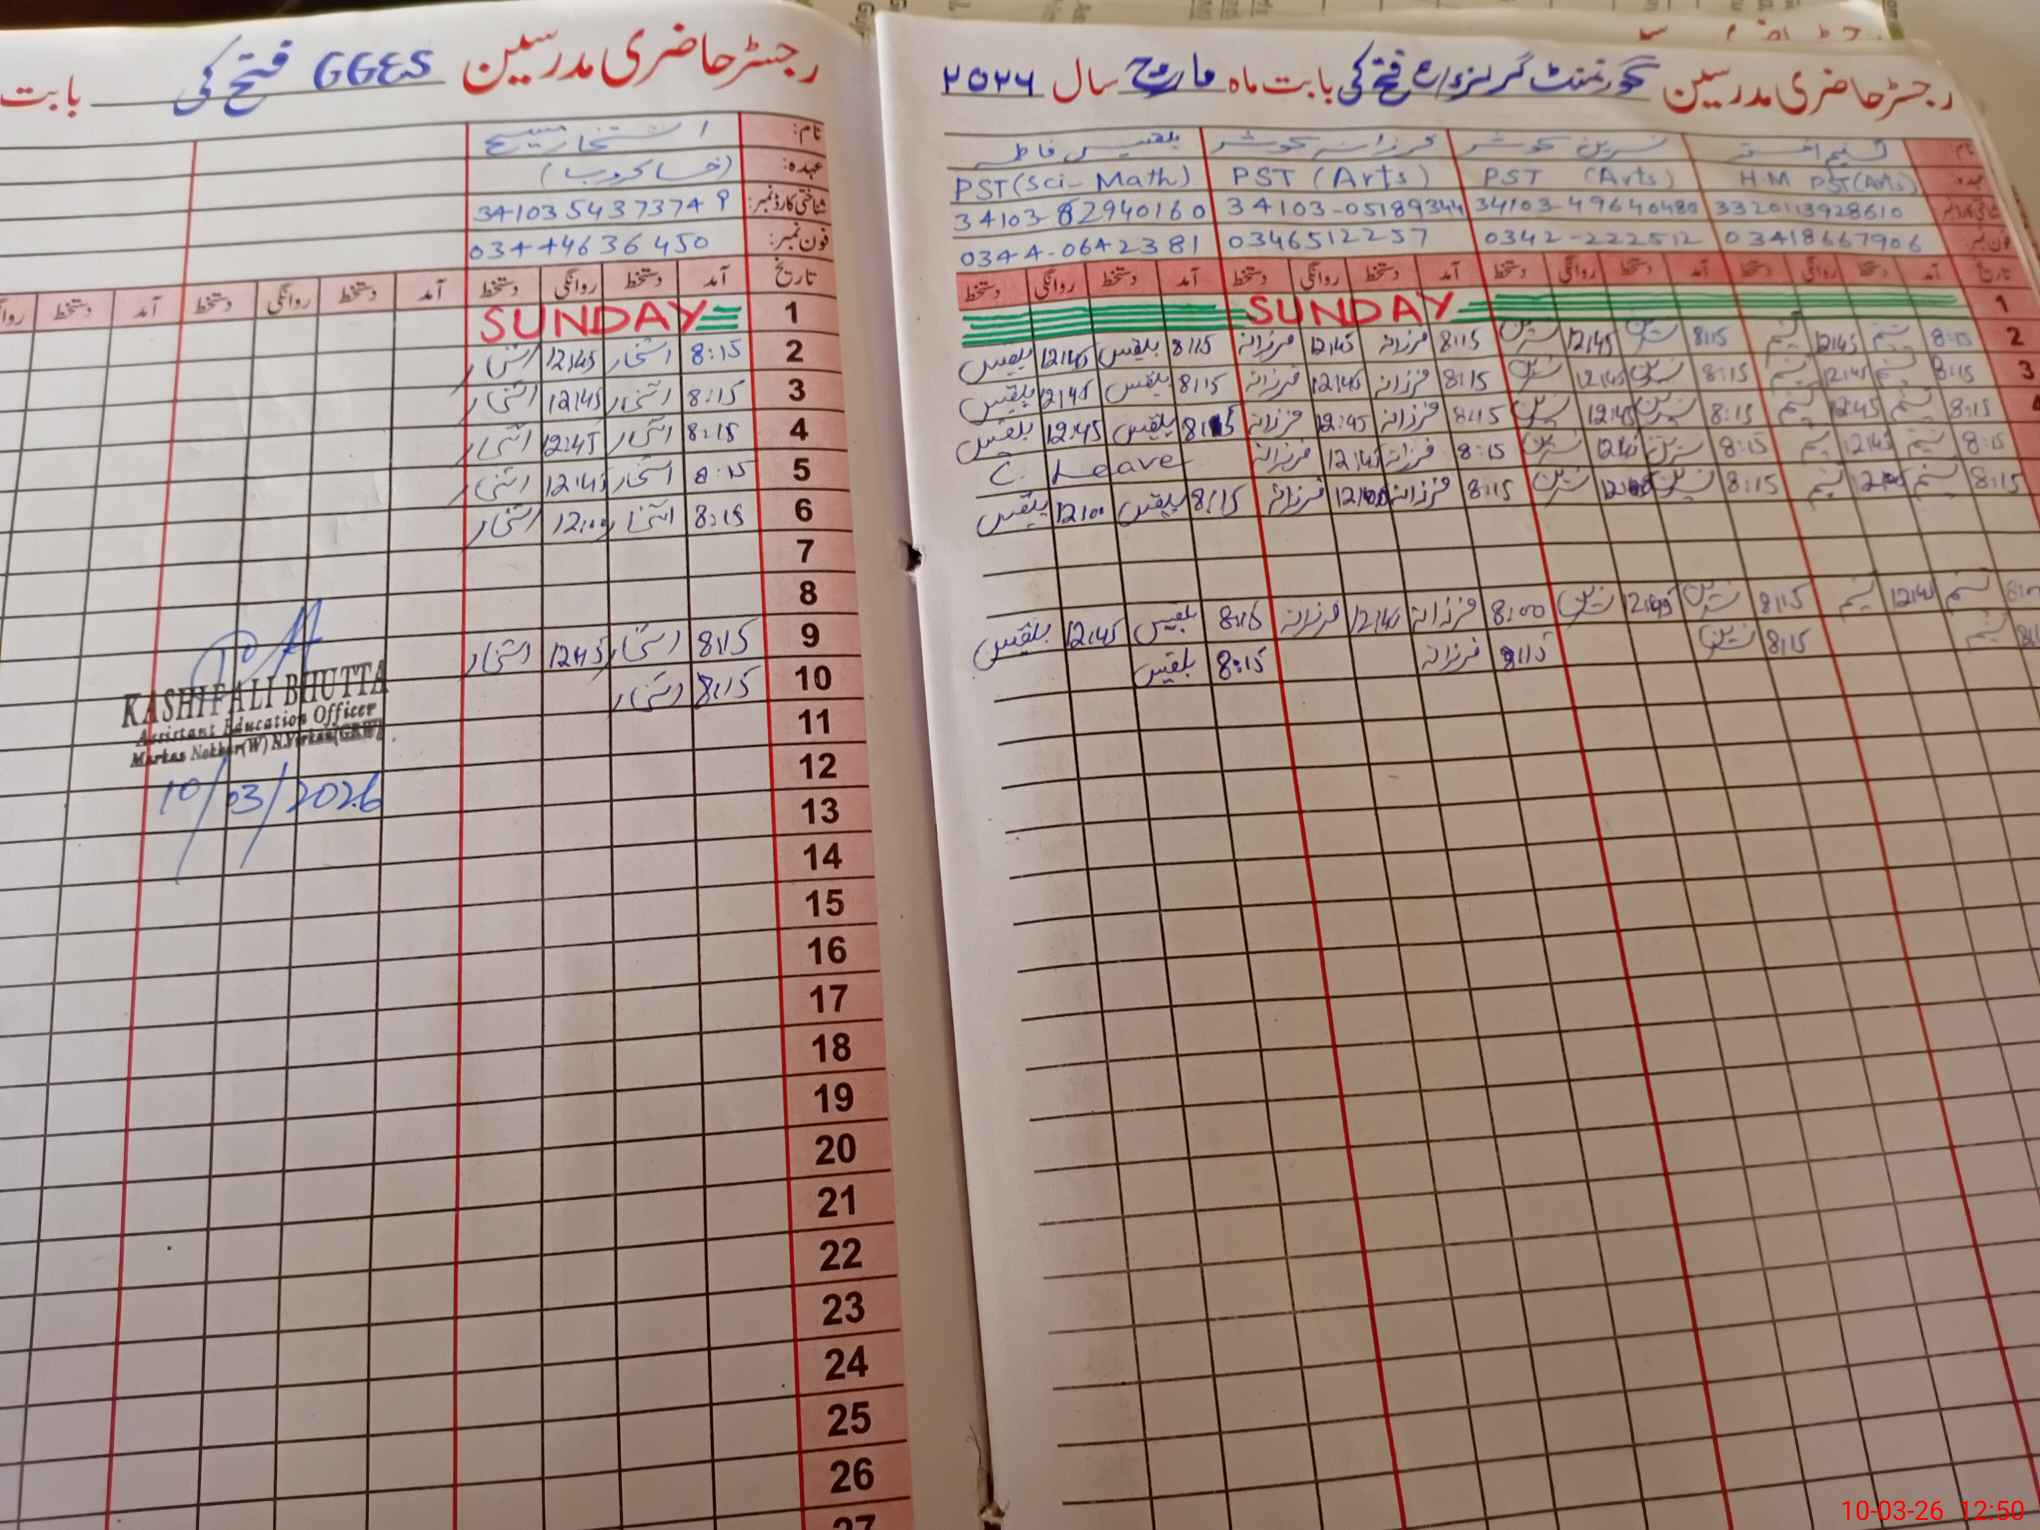 رجسٹر حاضری مدرسین گورنمنٹ گرلز فتح کی بابت ماہ مارچ سال ۲۰۲۶
نام: نسیم اختر نسرین کوثر فرزانہ کوثر بلقیس فاطمہ
عہدہ: H.M PST(Arts) PST (Arts) PST (Arts) PST(Sci-Math)
شناختی کارڈ نمبر: 3320113928610 34103-49640480 34103-05189344 34103-82940160
فون نمبر: 03418667906 0342-222512 0346512257 0344-0642381
تاریخ آمد دستخط روانگی دستخط آمد دستخط روانگی دستخط آمد دستخط روانگی دستخط آمد دستخط روانگی دستخط
1 SUNDAY
2 8:15 نسیم 12:45 نسیم 8:15 نسرین 12:45 نسرین 8:15 فرزانہ 12:45 فرزانہ 8:15 بلقیس 12:45 بلقیس
3 8:15 نسیم 12:45 نسیم 8:15 نسرین 12:45 نسرین 8:15 فرزانہ 12:45 فرزانہ 8:15 بلقیس 12:45 بلقیس
4 8:15 نسیم 12:45 نسیم 8:15 نسرین 12:45 نسرین 8:15 فرزانہ 12:45 فرزانہ 8:15 بلقیس 12:45 بلقیس
8:15 نسیم 12:45 نسیم 8:15 نسرین 12:45 نسرین 8:15 فرزانہ 12:45 فرزانہ C. Leave
8:15 نسیم نسیم 8:15 نسرین نسرین 8:15 فرزانہ فرزانہ 8:15 بلقیس 12:00 بلقیس
نسیم 12:45 نسیم 8:15 نسرین 12:45 نسرین 8:00 فرزانہ 12:45 فرزانہ 8:15 بلقیس 12:45 بلقیس
نسیم 8:15 نسرین 8:15 فرزانہ 8:15 بلقیس
رجسٹر حاضری مدرسین GGES فتح کی بابت
نام: افتخار مسیح
عہدہ: (خاکروب)
شناختی کارڈ نمبر: 3410354373749
فون نمبر: 03444636450
تاریخ آمد دستخط روانگی دستخط آمد دستخط روانگی دستخط آمد دستخط روا
1 SUNDAY
2 8:15 افتخار 12:45 افتخار
3 8:15 افتخار 12:45 افتخار
4 8:15 افتخار 12:45 افتخار
5 8:15 افتخار 12:45 افتخار
6 8:15 افتخار 12:00 افتخار
7
8
9 8:15 افتخار 12:45 افتخار
10 8:15 افتخار
11
12
13
14
15
16
17
18
19
20
21
22
23
24
25
26
27
KASHIF ALI BHUTTA
Assistant Education Officer
Markaz Nokhar(W) N.Virkan(GRW)
10/03/2026
10-03-26 12:50